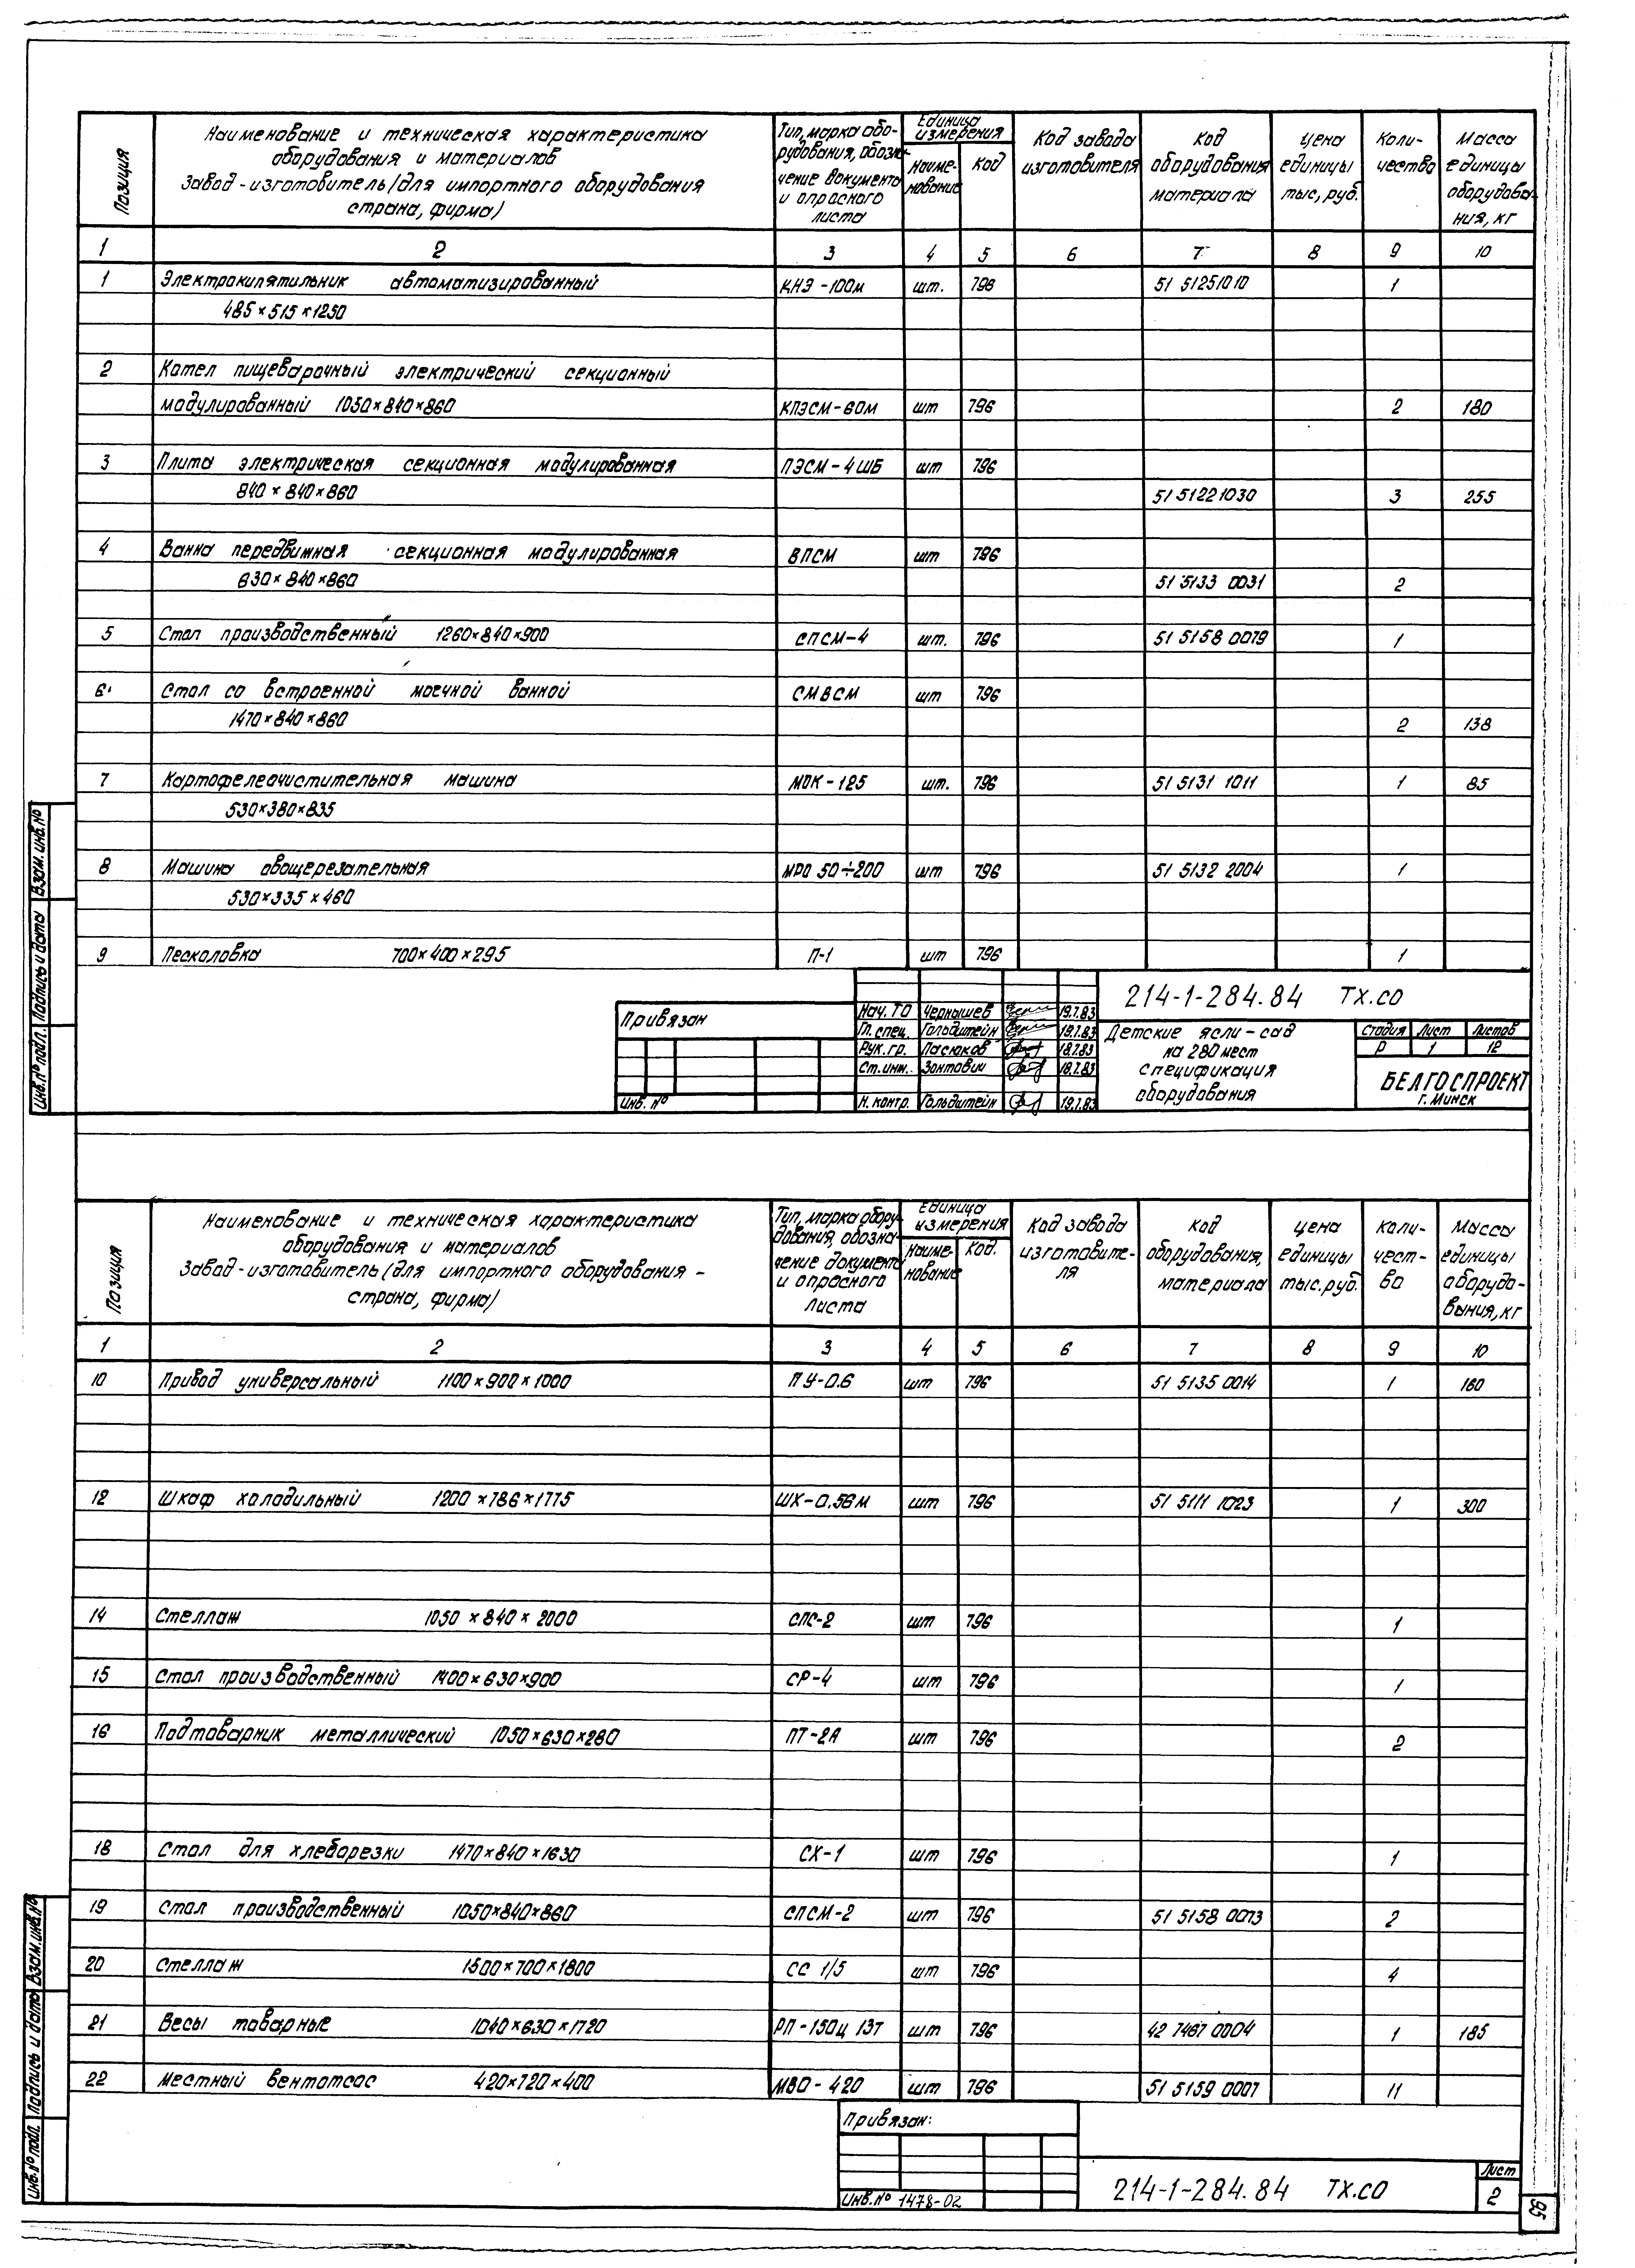 Позиция
Наименование и техническая характеристика
оборудования и материалов
Завод-изготовитель (для импортного оборудования
страна, фирма)
Тип, марка обо-
рудования, обозна-
чение документа
и опросного
листа
Единица
измерения
Наиме-
нование
Код
Код завода
изготовителя
Код
оборудования
материала
Цена
единицы
тыс, руб.
Коли-
чество
Масса
единицы
оборудова-
ния, кг
1 2 3 4 5 6 7 8 9 10
1 Электрокипятильник автоматизированный КНЭ-100м шт. 796 51 51251010 1
485×515×1250
2 Котел пищеварочный электрический секционный
модулированный 1050×840×860 КПЭСМ-60м шт 796 2 180
3 Плита электрическая секционная модулированная ПЭСМ-4ШБ шт 796
840×840×860 51 51221030 3 255
4 Ванна передвижная секционная модулированная ВПСМ шт 796
630×840×860 51 5133 0031 2
5 Стол производственный 1260×840×900 СПСМ-4 шт. 796 51 5158 0079 1
6 Стол со встроенной моечной ванной СМВСМ шт 796
1470×840×860 2 138
7 Картофелеочистительная машина МОК-125 шт. 796 51 5131 1011 1 85
530×380×835
8 Машина овощерезательная МРО 50÷200 шт 796 51 5132 2004 1
530×335×460
9 Песколовка 700×400×295 П-1 шт 796 1
Привязан
Инв. №
Нач. ТО Чернышев 19.1.83
Гл. спец. Гольдштейн 19.1.83
Рук. гр. Пасюков 18.1.83
Ст. инж. Зонтович 18.1.83
Н. контр. Гольдштейн 19.1.83
214-1-284.84 ТХ.СО
Детские ясли-сад
на 280 мест
Спецификация
оборудования
Стадия Лист Листов
Р 1 12
БЕЛГОСПРОЕКТ
г. Минск
Инв. № подл. Подпись и дата Взам. инв. №
Позиция
Наименование и техническая характеристика
оборудования и материалов
Завод-изготовитель (для импортного оборудования -
страна, фирма)
Тип, марка обору-
дования, обозна-
чение документа
и опросного
листа
Единица
измерения
Наиме-
нование
Код.
Код завода
изготовите-
ля
Код
оборудования,
материала
Цена
единицы
тыс. руб.
Коли-
чест-
во
Массы
единицы
оборудо-
выния, кг
1 2 3 4 5 6 7 8 9 10
10 Привод универсальный 1100×900×1000 ПУ-0.6 шт 796 51 5135 0014 1 160
12 Шкаф холодильный 1200×786×1775 ШХ-0.56м шт 796 51 5111 1023 1 300
14 Стеллаж 1050×840×2000 СПС-2 шт 796 1
15 Стол производственный 1400×630×900 СР-4 шт 796 1
16 Подтоварник металлический 1050×630×280 ПТ-2А шт 796 2
18 Стол для хлеборезки 1470×840×1630 СХ-1 шт 796 1
19 Стол производственный 1050×840×860 СПСМ-2 шт 796 51 5158 0073 2
20 Стеллаж 1500×700×1800 СС 1/5 шт 796 4
21 Весы товарные 1040×630×1720 РП-150ц 13т шт 796 42 7467 0004 1 185
22 Местный вентотсос 420×720×400 МВО-420 шт 796 51 5159 0007 11
Привязан:
Инв. № 1478-02
214-1-284.84 ТХ.СО
Лист
2
Инв. № подл. Подпись и дата Взам. инв. №
95